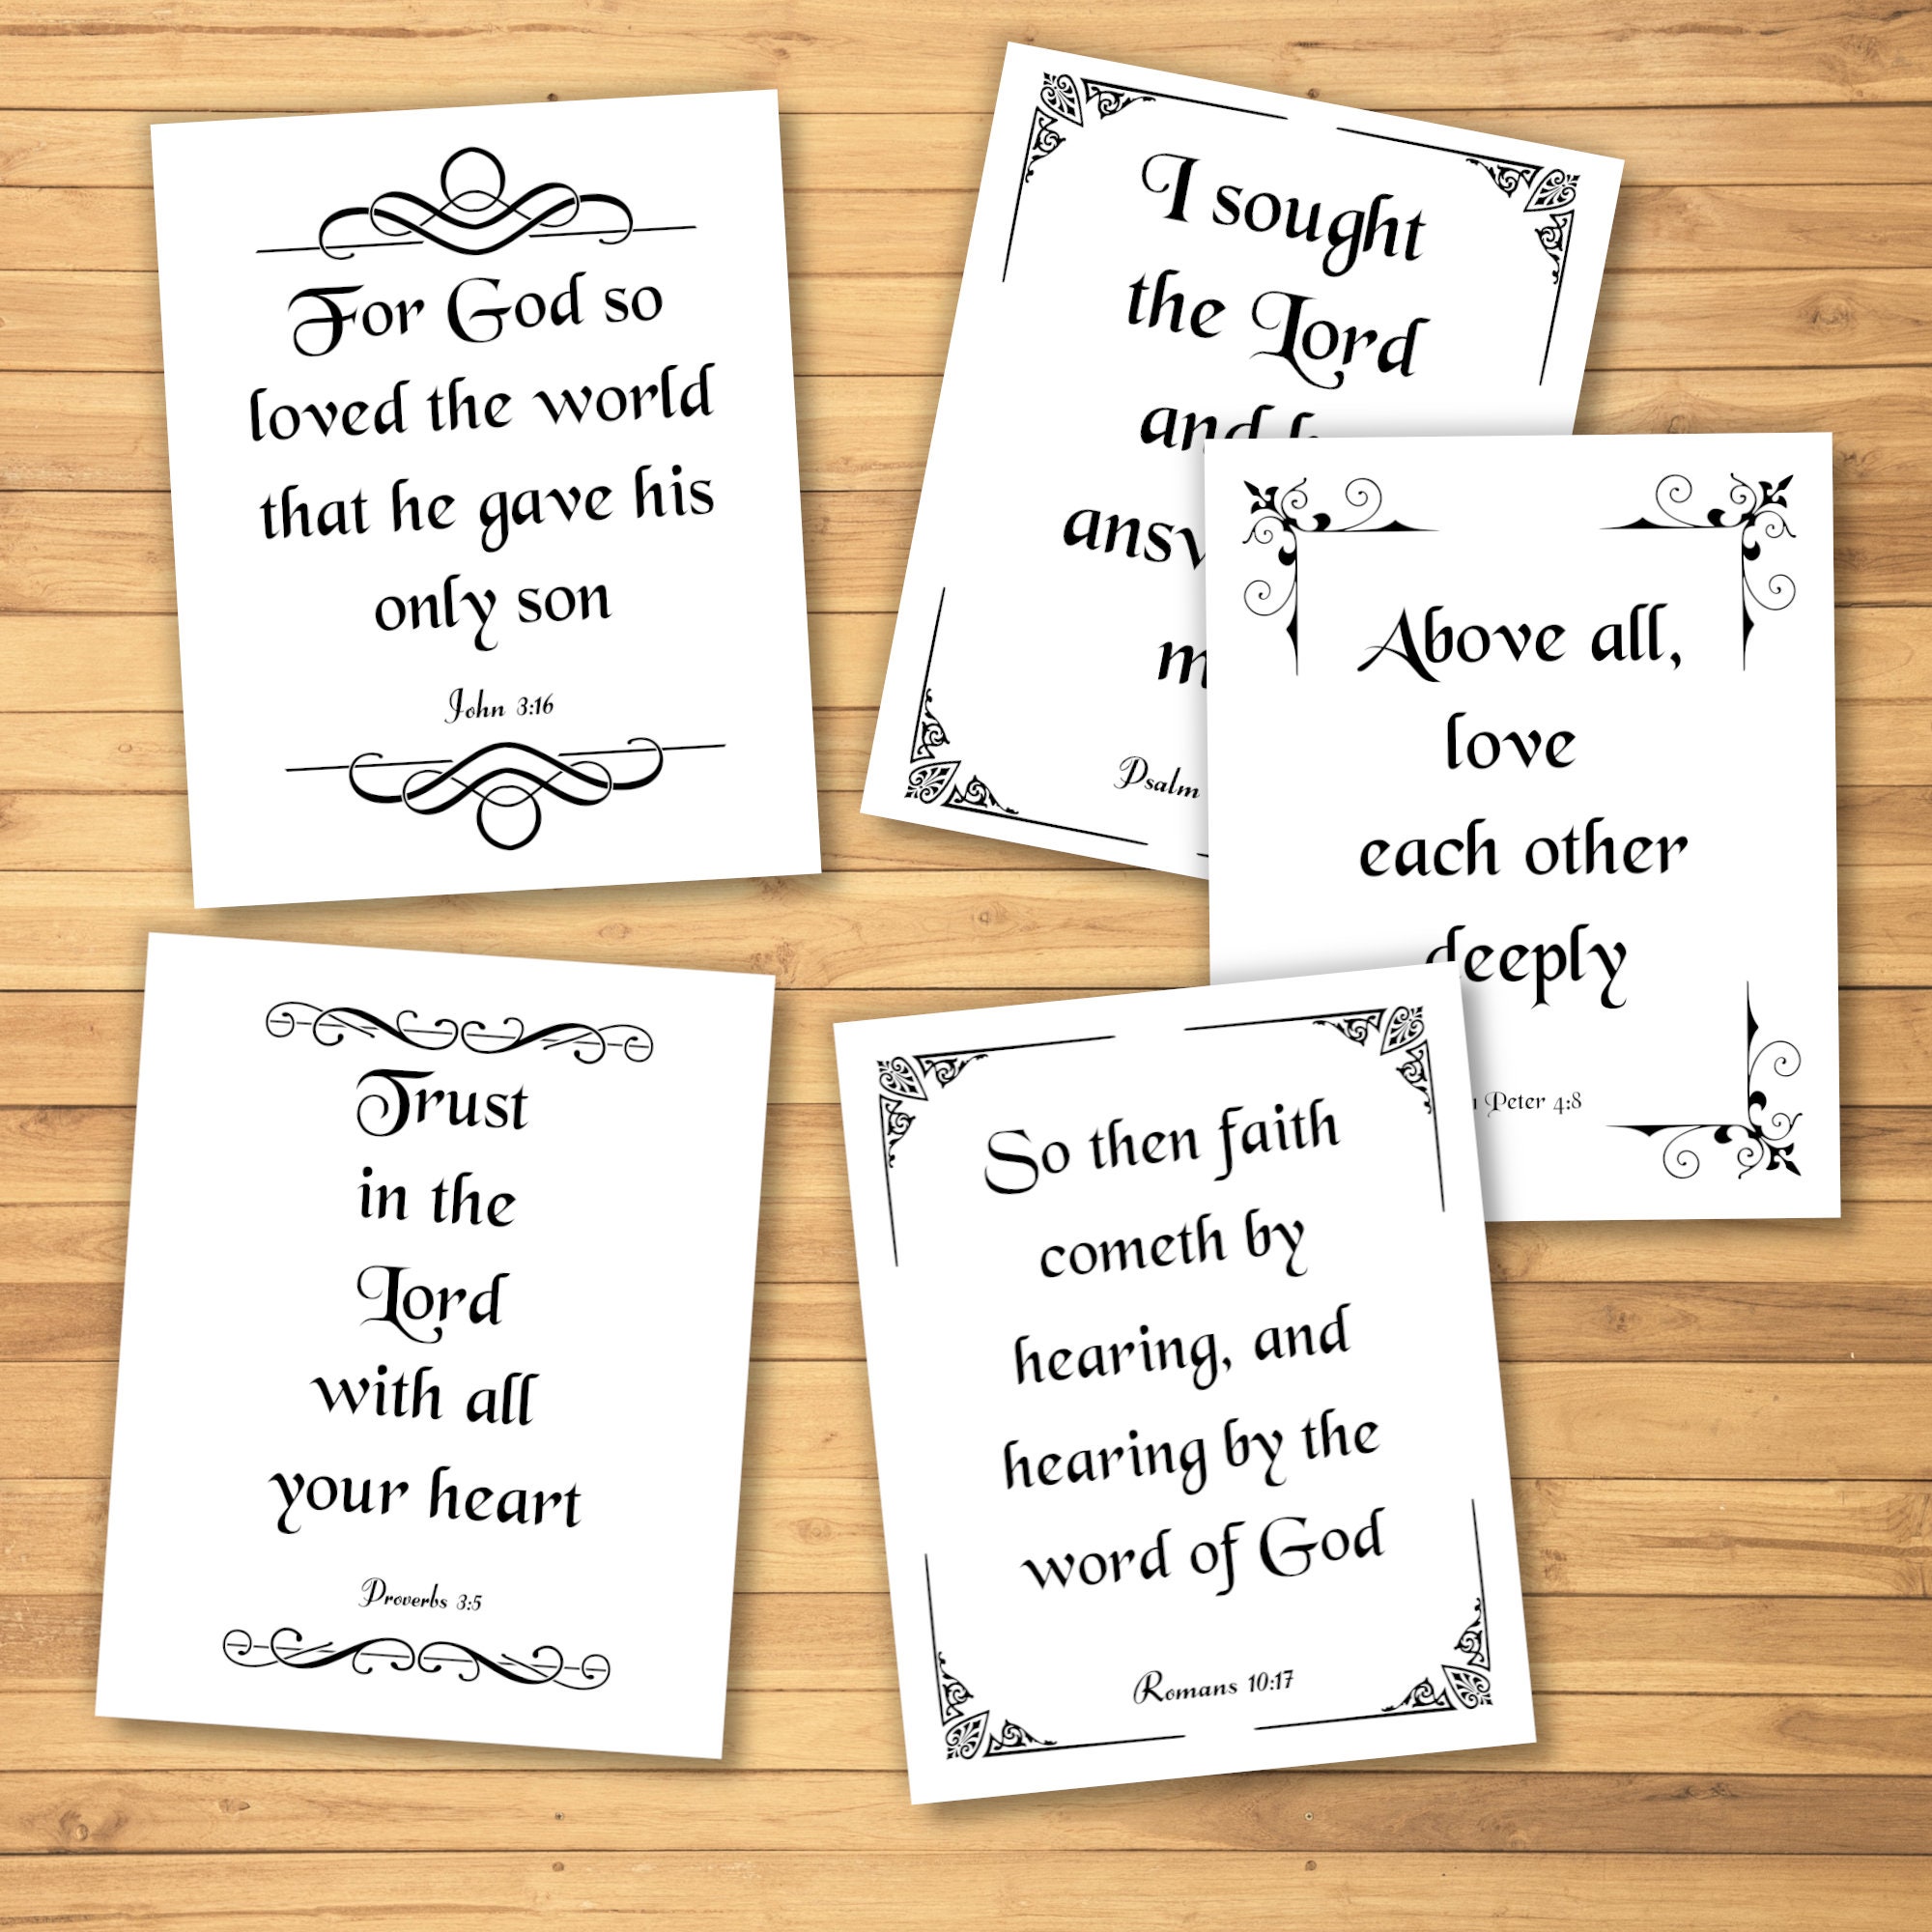 For God so
loved the world
that he gave his
only son
John 3:16
I sought
the Lord
and
Psalm
Above all,
love
each other
deeply
Peter 4:8
Trust
in the
Lord
with all
your heart
Proverbs 3:5
So then faith
cometh by
hearing, and
hearing by the
word of God
Romans 10:17